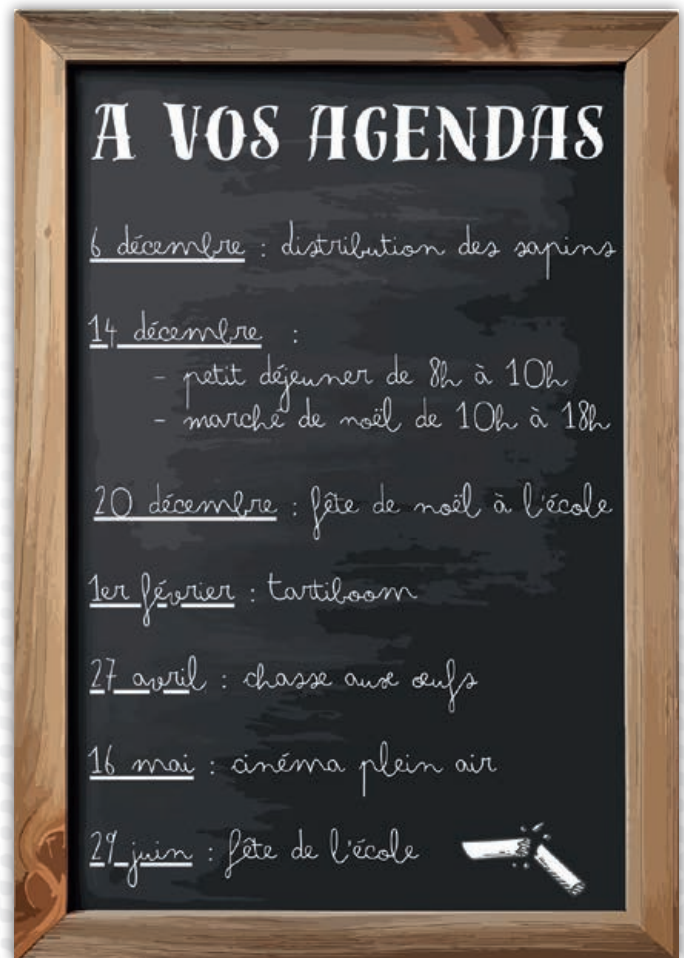 A VOS AGENDAS
6 décembre : distribution des sapins
14 décembre :
- petit déjeuner de 8h à 10h
- marché de noël de 10h à 18h
20 décembre : fête de noël à l'école
1er février : tartiboom
27 avril : chasse aux œufs
16 mai : cinéma plein air
29 juin : fête de l'école